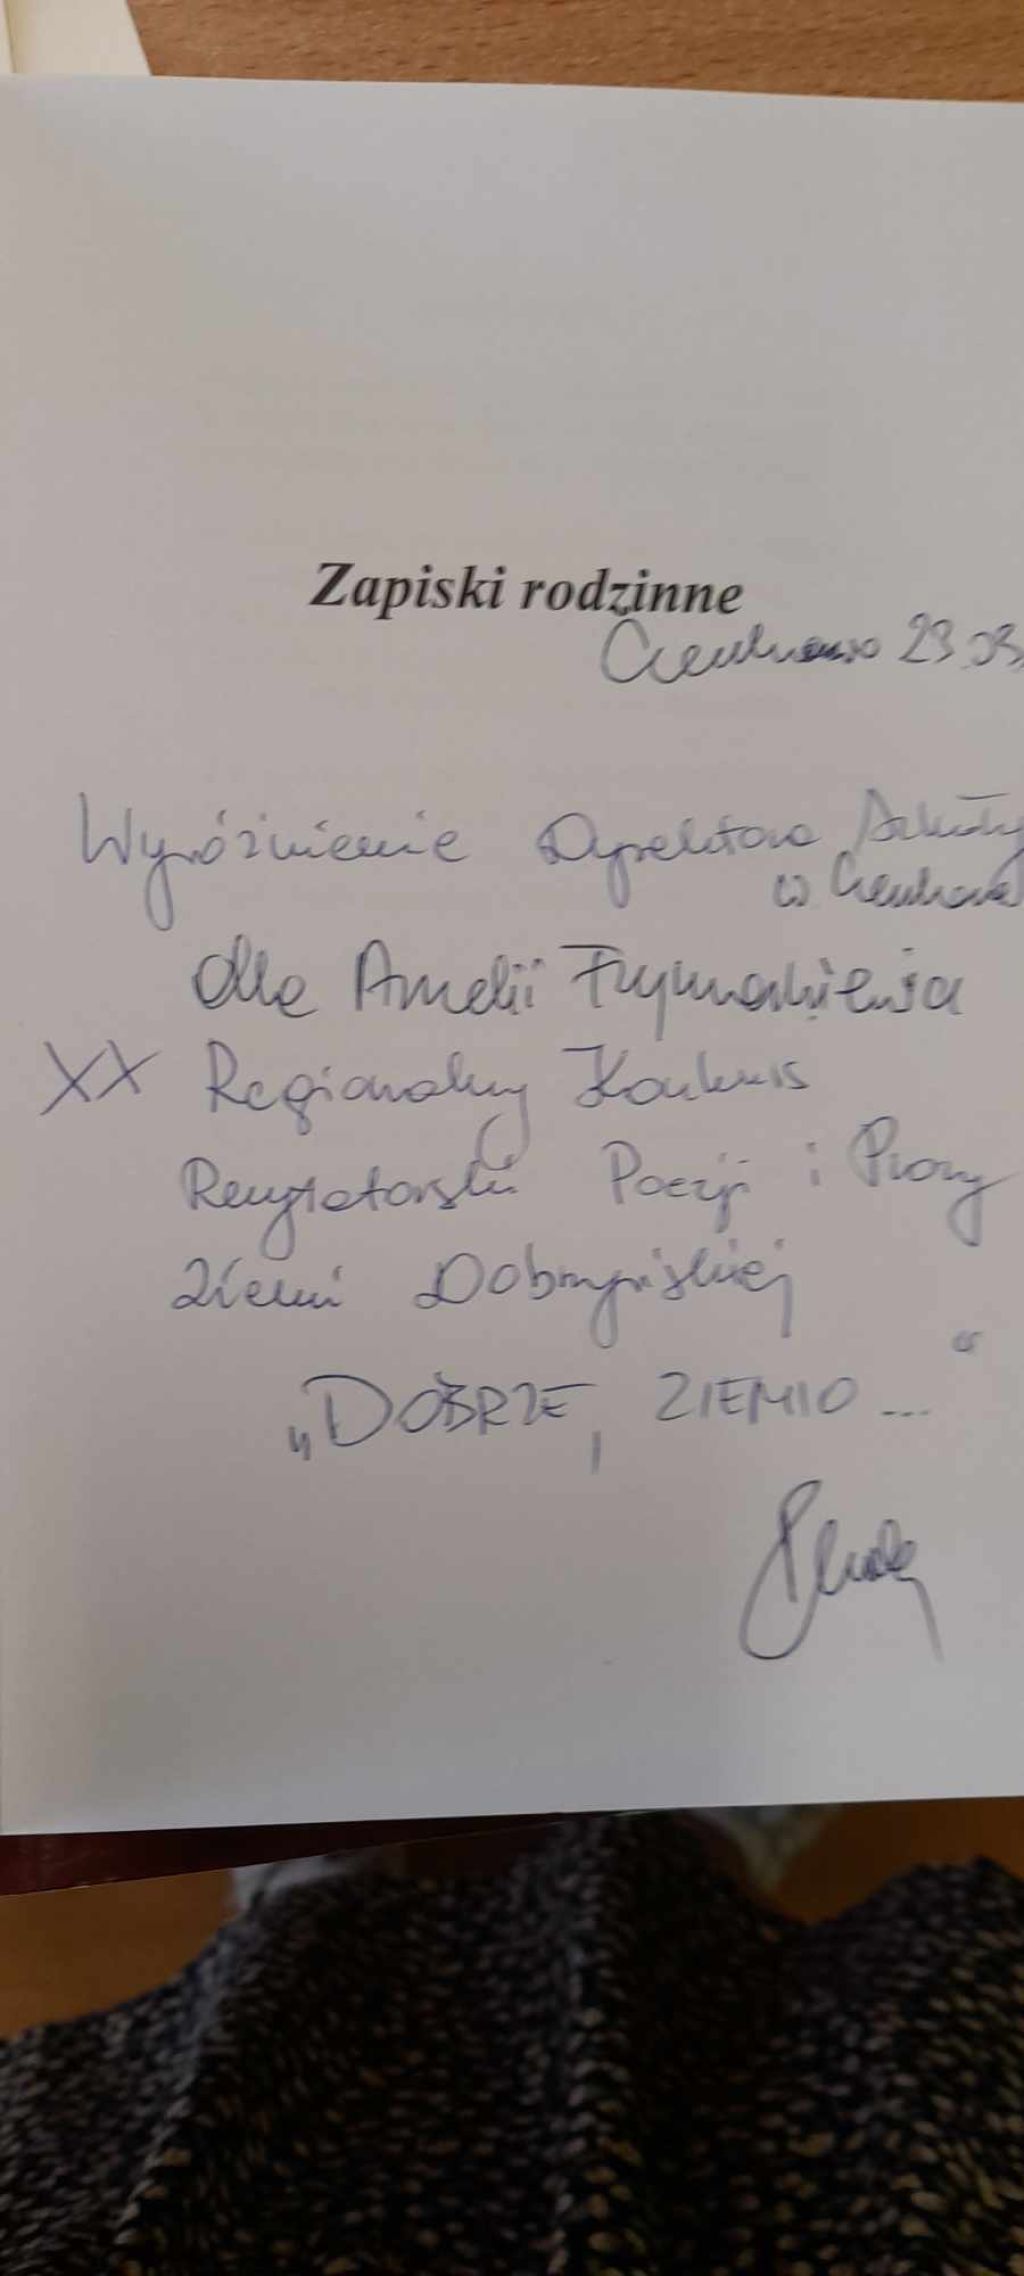 Zapiski rodzinne
23.03.
Wyróżnienie Dyrektora Szkoły
w
dla Amelii
XX Regionalny Konkurs
Recytatorski Poezji i Prozy
Ziemi Dobrzyńskiej
„DOBRZE, ZIEMIO ..."